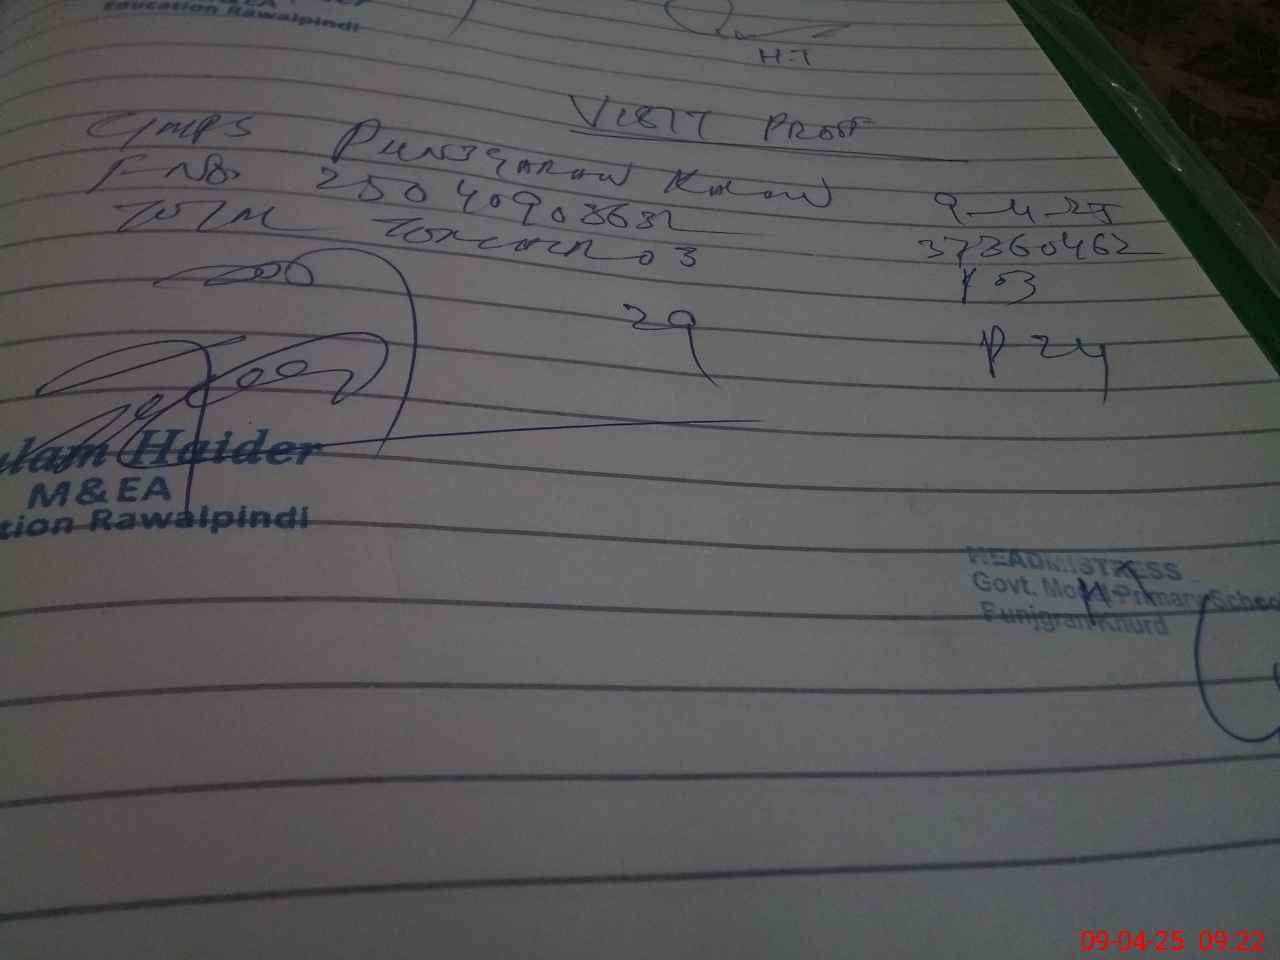 M&EA
Education Rawalpindi
H.T
VISIT PROOF
GMPS PUNJGARAN KHURD 9-4-25
F-NO. 25040903632 37360462
TOTAL TEACHER 03 P 03
29 P 24
ulam Haider
M&EA
tion Rawalpindi
HEADMISTRESS
Govt. Model Primary Schoo
Punjgran Khurd
09-04-25 09:22